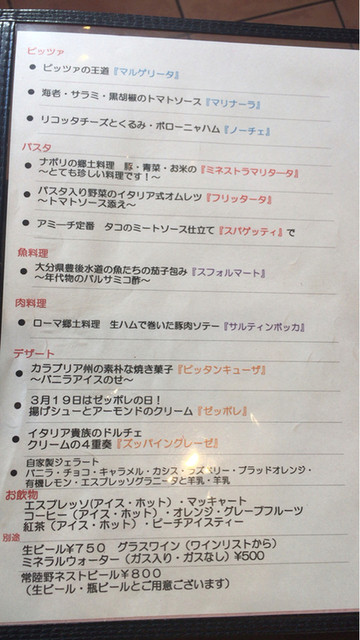 ピッツァ
● ピッツァの王道『マルゲリータ』
● 海老・サラミ・黒胡椒のトマトソース『マリナーラ』
● リコッタチーズとくるみ・ボローニャハム『ノーチェ』
パスタ
● ナポリの郷土料理 豚・青菜・お米の『ミネストラマリタータ』
～とても珍しい料理です！～
● パスタ入り野菜のイタリア式オムレツ『フリッタータ』
～トマトソース添え～
● アミーチ定番 タコのミートソース仕立て『スパゲッティ』で
魚料理
● 大分県豊後水道の魚たちの茄子包み『スフォルマート』
～年代物のバルサミコ酢～
肉料理
● ローマ郷土料理 生ハムで巻いた豚肉ソテー『サルティンボッカ』
デザート
● カラブリア州の素朴な焼き菓子『ピッタンキューザ』
～バニラアイスのせ～
● ３月１９日はゼッポレの日！
揚げシューとアーモンドのクリーム『ゼッポレ』
● イタリア貴族のドルチェ
クリームの４重奏『ズッパイングレーゼ』
● 自家製ジェラート
バニラ・チョコ・キャラメル・カシス・ラズベリー・ブラッドオレンジ・
有機レモン・エスプレッソグラニータと羊乳・羊乳
お飲物
エスプレッソ(アイス・ホット)・マッキャート
コーヒー(アイス・ホット)・オレンジ・グレープフルーツ
紅茶(アイス・ホット)・ピーチアイスティー
別途
生ビール￥７５０ グラスワイン(ワインリストから)
ミネラルウォーター(ガス入り・ガスなし)¥500
常陸野ネストビール￥８００
(生ビール・瓶ビールとご用意ございます)